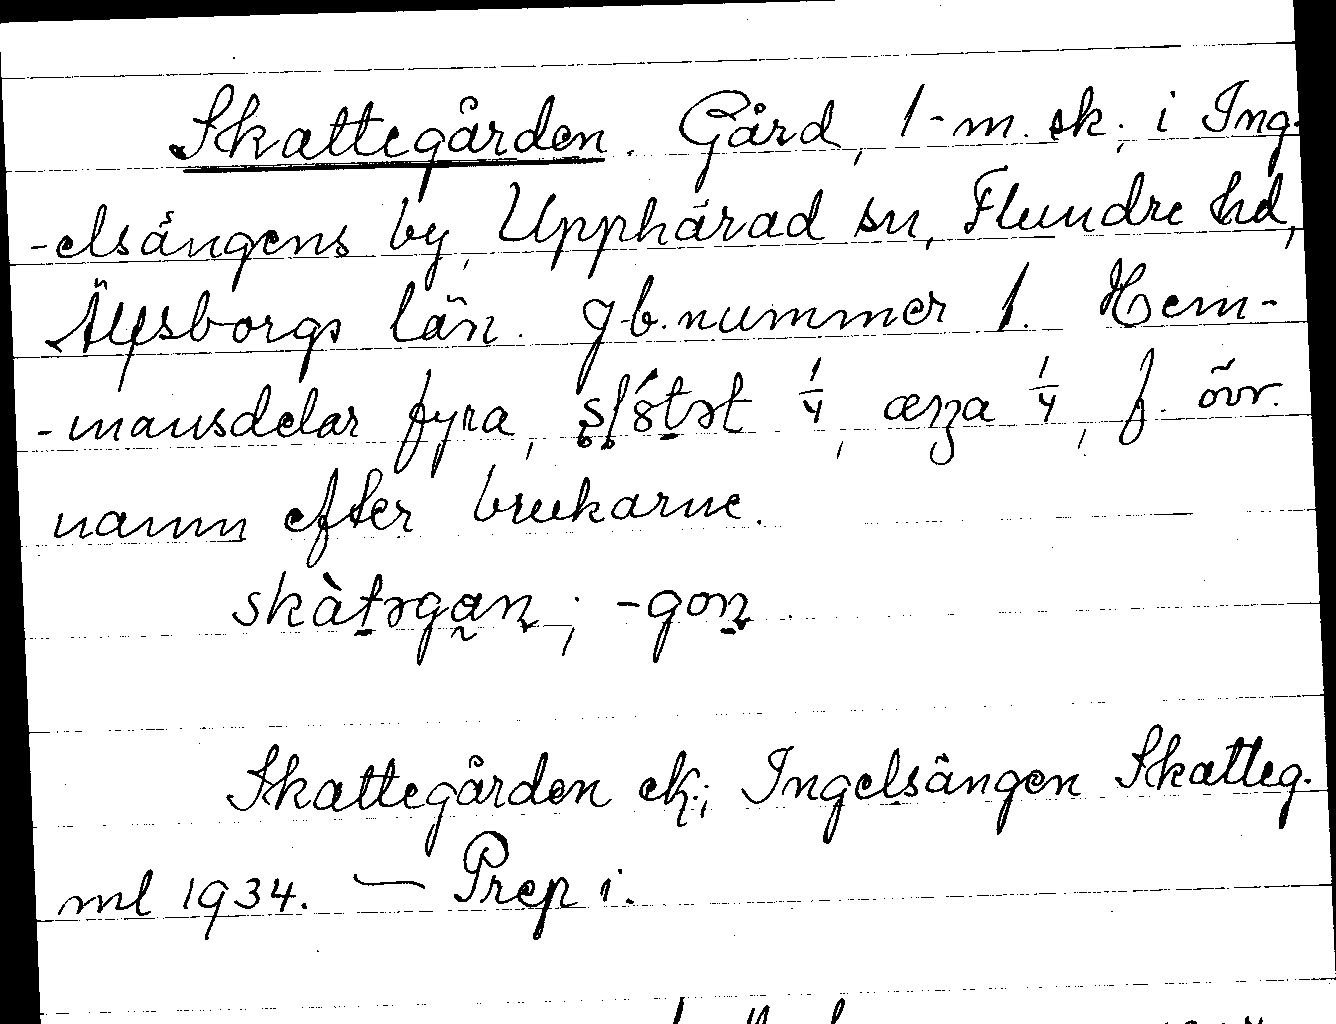 Skattegården. Gård, 1-m. sk. i Ing-
-elsängens by, Upphärad sn, Flundre hd,
Älfsborgs län. Jb. nummer 1. Hem-
-mansdelar fyra, 1/4, 1/4, f. övr.
namn efter brukarne.
skàt̠əga̰n̠; -gon̠.
Skattegården ek.; Ingelsängen Skatteg.
ml 1934. — Prep i.